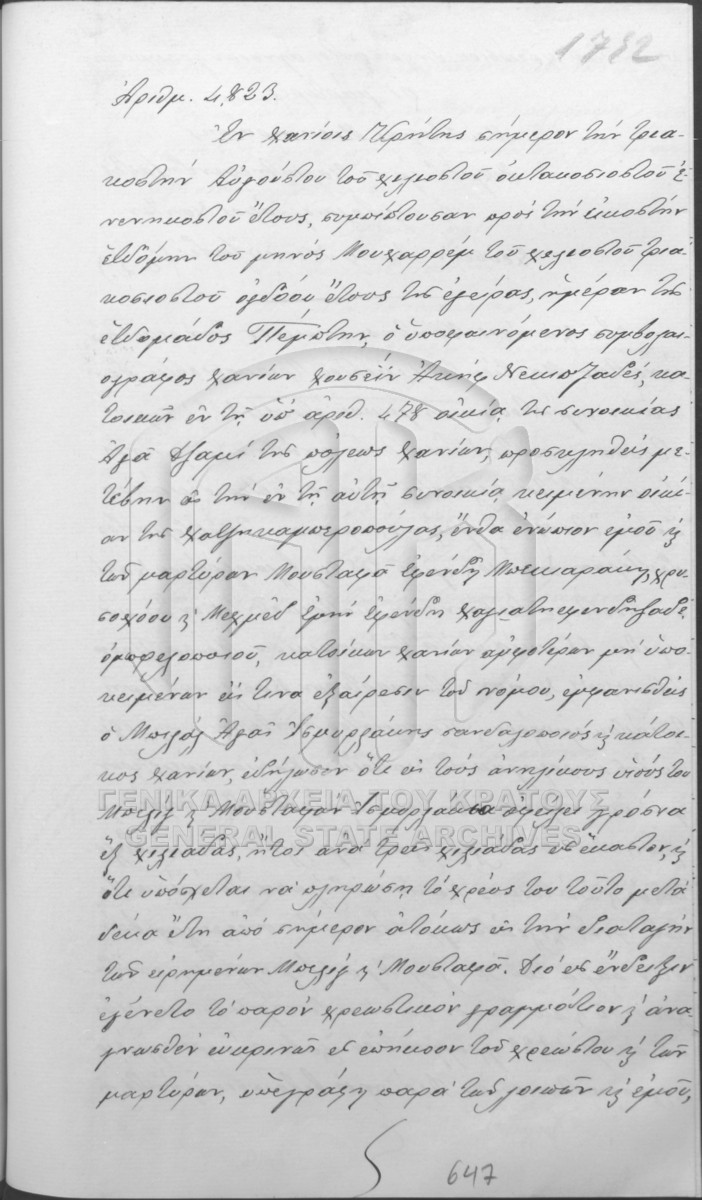 1782
Ἀριθμ. 4,823.
Ἐν Χανίοις Κρήτης σήμερον τὴν τρια-
κοστὴν Αὐγούστου τοῦ χιλιοστοῦ ὀκτακοσιοστοῦ ἐ-
νενηκοστοῦ ἔτους, συμπίπτουσαν πρὸς τὴν εἰκοστὴν
ἑβδόμην τοῦ μηνὸς Μουχαρρὲμ τοῦ χιλιοστοῦ τρια-
κοσιοστοῦ ὀγδόου ἔτους τῆς ἐγείρας, ἡμέραν τῆς
ἑβδομάδος Πέμπτην, ὁ ὑποφαινόμενος συμβολαι-
ογράφος Χανίων Χουσεΐν Ἀκὴφ Νεκιπ Ζαδές, κα-
τοικῶν ἐν τῇ ὑπ' ἀριθ. 478 οἰκίᾳ τῆς συνοικίας
Ἀγᾶ Τζαμί τῆς πόλεως Χανίων, προσκληθεὶς με-
τέβην εἰς τὴν ἐν τῇ αὐτῇ συνοικίᾳ κειμένην οἰκί-
αν τῆς Χατζηκαμπεροπούλας, ἔνθα ἐνώπιον ἐμοῦ κ̀
τῶν μαρτύρων Μουσταφᾶ Ἐφένδη Μπεκιαράκη, χρυ-
σοχόου κ̀ Μεχμὲδ Ἐμὶν Ἐφένδη
ὀμπρελοποιοῦ, κατοίκων Χανίων ἀμφοτέρων μὴ ὑπο-
κειμένων εἰς τινα ἐξαίρεσιν τοῦ νόμου, ἐμφανισθεὶς
ὁ Μπιλὰλ Ἀγᾶς Ἰσμυρλάκης σανδαλοποιὸς κ̀ κάτοι-
κος Χανίων, ἐδήλωσεν ὅτι εἰς τοὺς ἀνηλίκους υἱούς του
κ̀ Μουσταφᾶν Ἰσμυρλάκια ὀφείλει γρόσια
ἓξ χιλιάδας, ἤτοι ἀνὰ τρεῖς χιλιάδας εἰς ἕκαστον, κ̀
ὅτι ὑπόσχεται νὰ πληρώσῃ τὸ χρέος του τοῦτο μετὰ
δέκα ἔτη ἀπὸ σήμερον ἀτόκως εἰς τὴν διαταγὴν
τῶν εἰρημένων κ̀ Μουσταφᾶ. Διὸ εἰς ἔνδειξιν
ἐγένετο τὸ παρὸν χρεωστικὸν γραμμάτιον κ̀ ἀνα-
γνωσθὲν εὐκρινῶς εἰς ἐπήκοον τοῦ χρεώστου κ̀ τῶν
μαρτύρων, ὑπεγράφη παρὰ τῶν λοιπῶν κ̀ ἐμοῦ,
647
ΓΕΝΙΚΑ ΑΡΧΕΙΑ ΤΟΥ ΚΡΑΤΟΥΣ
GENERAL STATE ARCHIVES